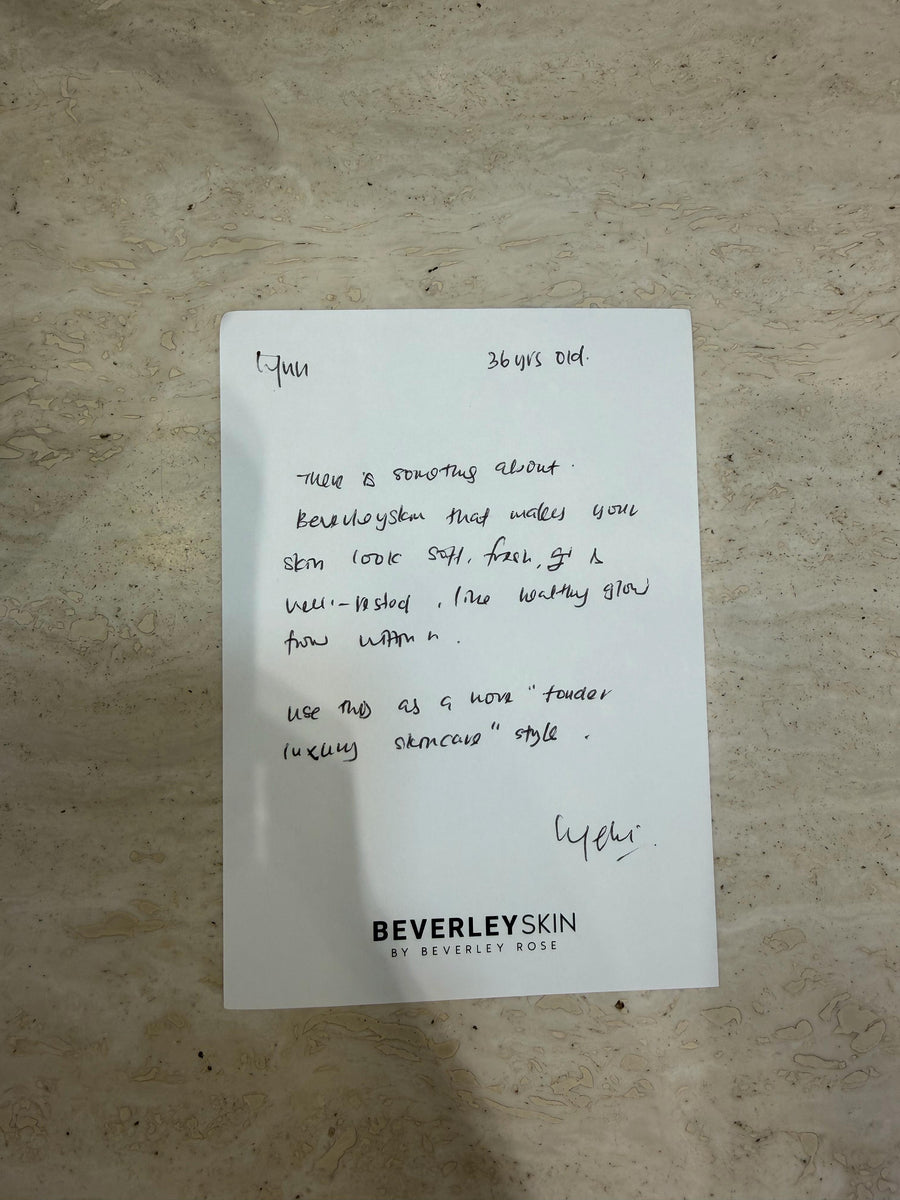 Lynn 36 yrs old.
There is something about
Beverleyskin that makes your
skin look soft, fresh, &
well-rested, like healthy glow
from within.
use this as a more "founder
luxury skincare" style.
BEVERLEYSKIN
BY BEVERLEY ROSE